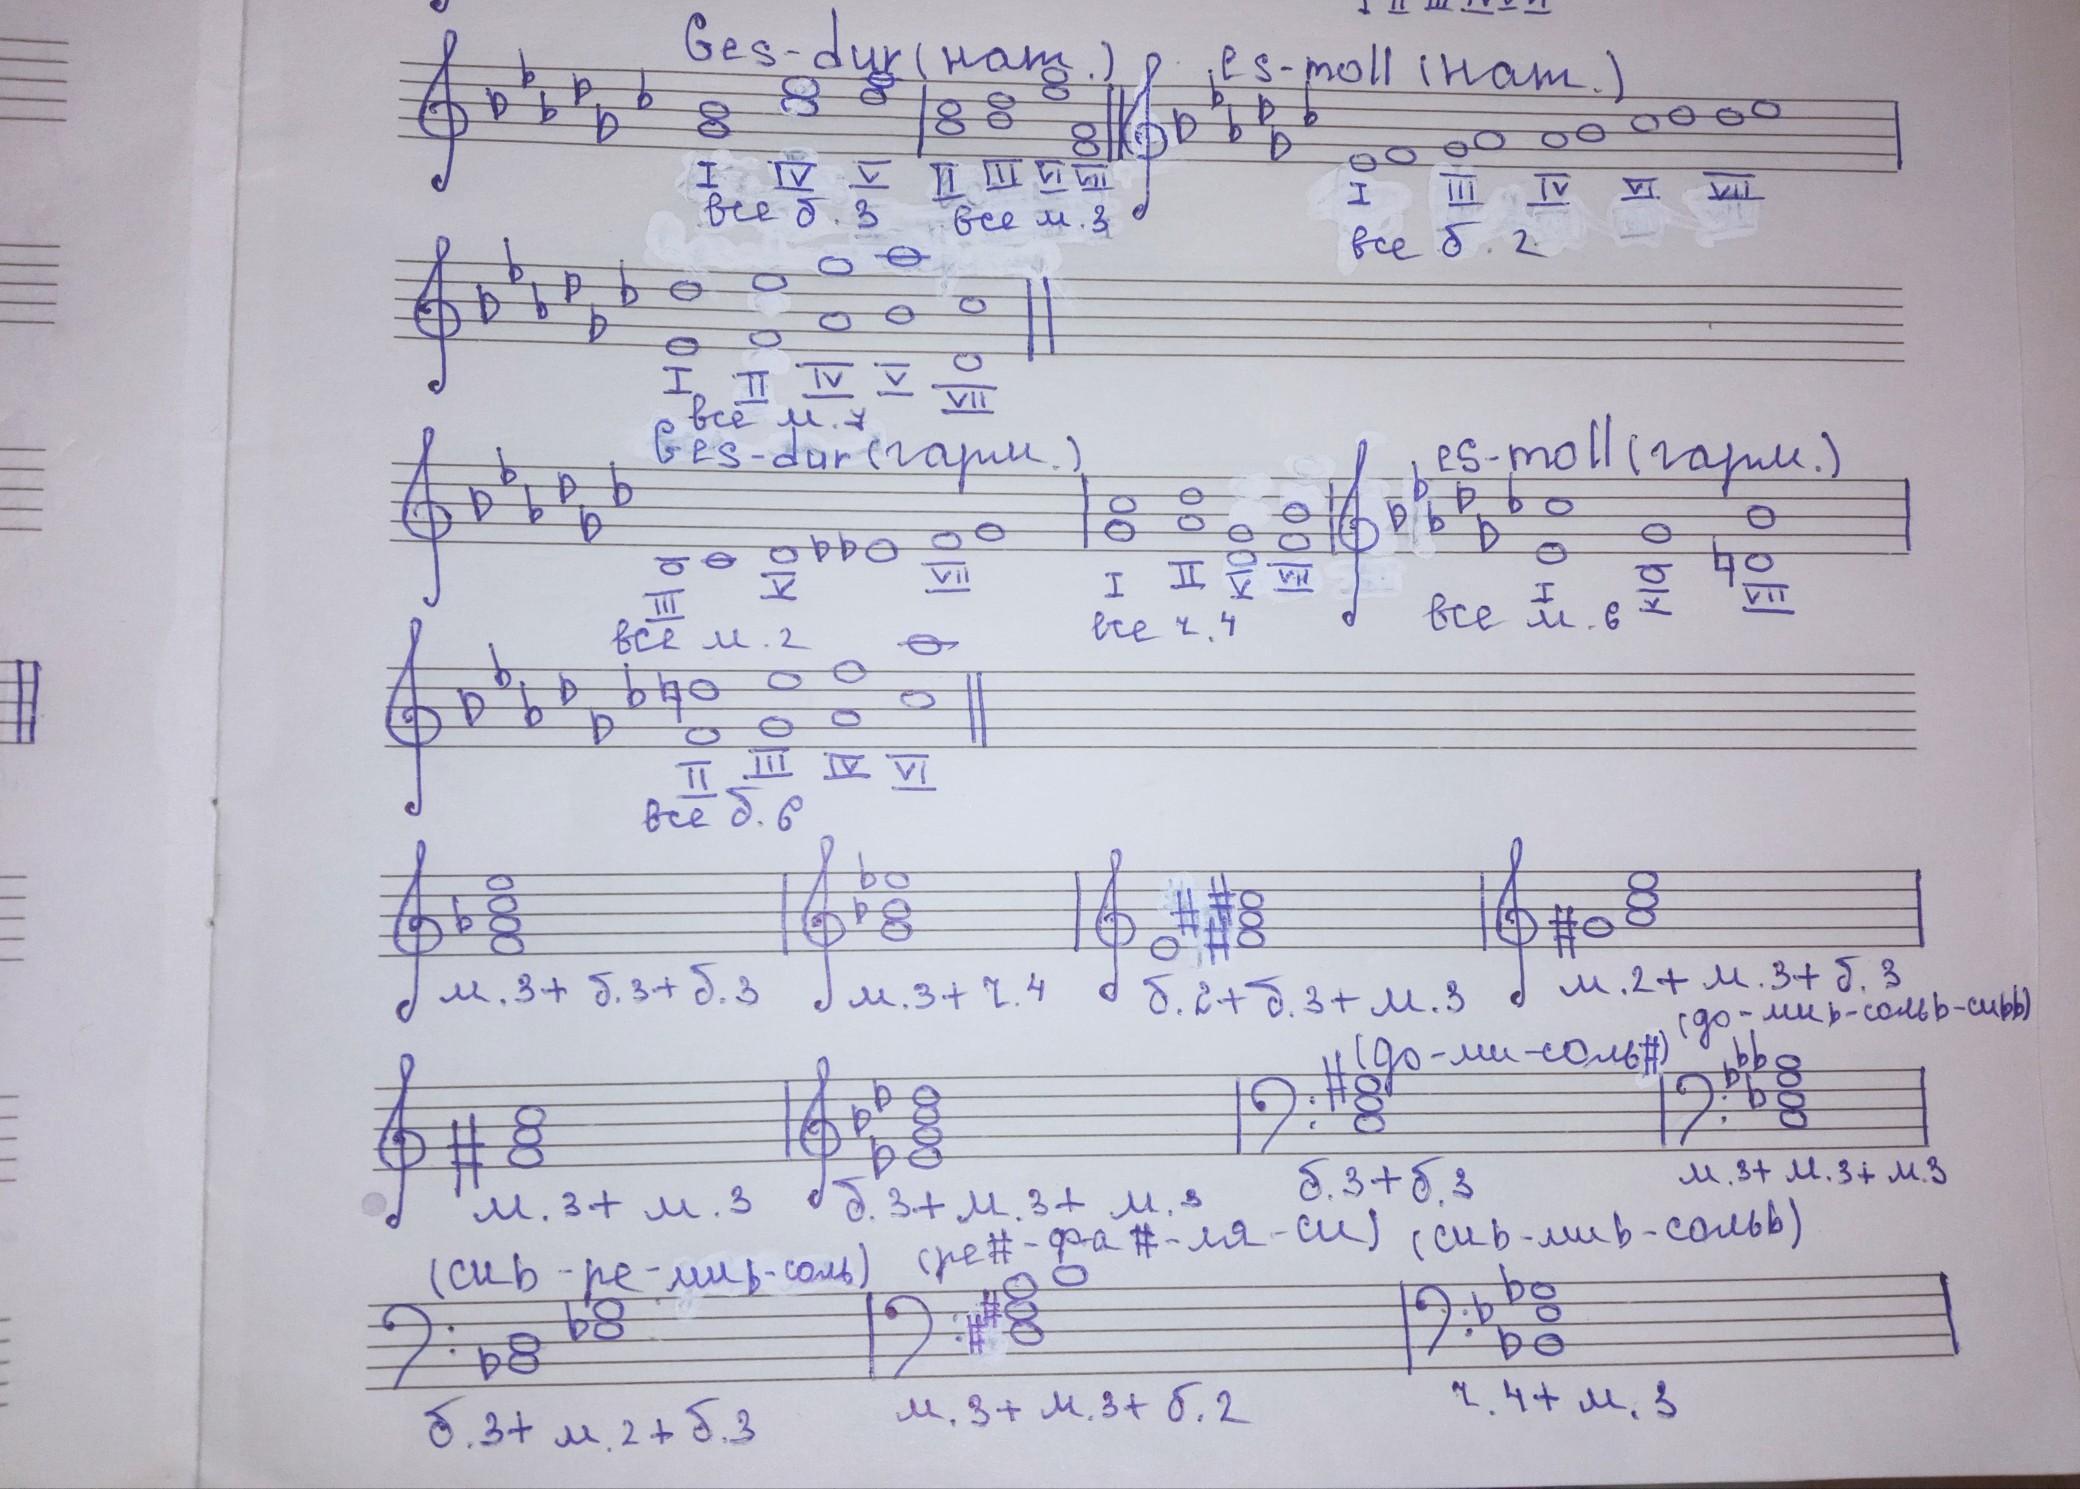 I II III IV V VI
Ges-dur (нат.) es-moll (нат.)
I IV V II III VI VII I III IV VI VII
все б. 3 все м. 3 все б. 2
I II IV V VII
все м. 7
Ges-dur (гарм.) es-moll (гарм.)
III VI VII I II VI VII I VI VII
все м. 2 все ч. 4 все м. 6
II III IV VI
все б. 6
м. 3 + б. 3 + б. 3 м. 3 + ч. 4 б. 2 + б. 3 + м. 3 м. 2 + м. 3 + б. 3
(до-ми-соль#) (до-миb-сольb-сиbb)
м. 3 + м. 3 б. 3 + м. 3 + м. 3 б. 3 + б. 3 м. 3 + м. 3 + м. 3
(сиb-ре-миb-соль) (ре#-фа#-ля-си) (сиb-миb-сольb)
б. 3 + м. 2 + б. 3 м. 3 + м. 3 + б. 2 ч. 4 + м. 3